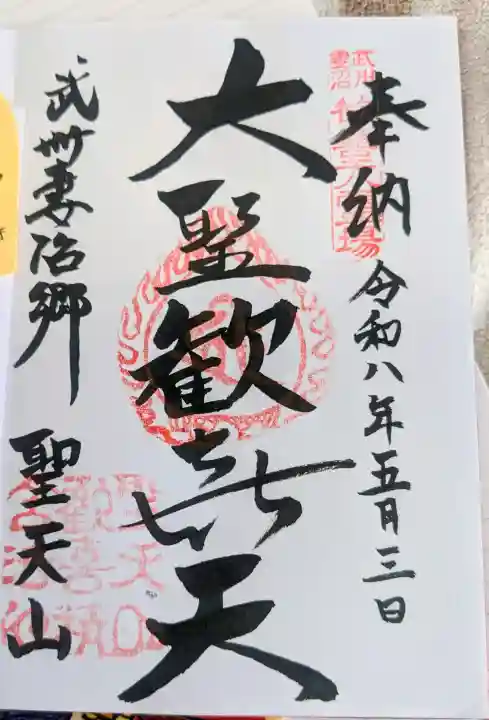 奉納 令和八年五月三日
武州
妻沼
大聖歓㐂天
武州妻沼郷 聖天山